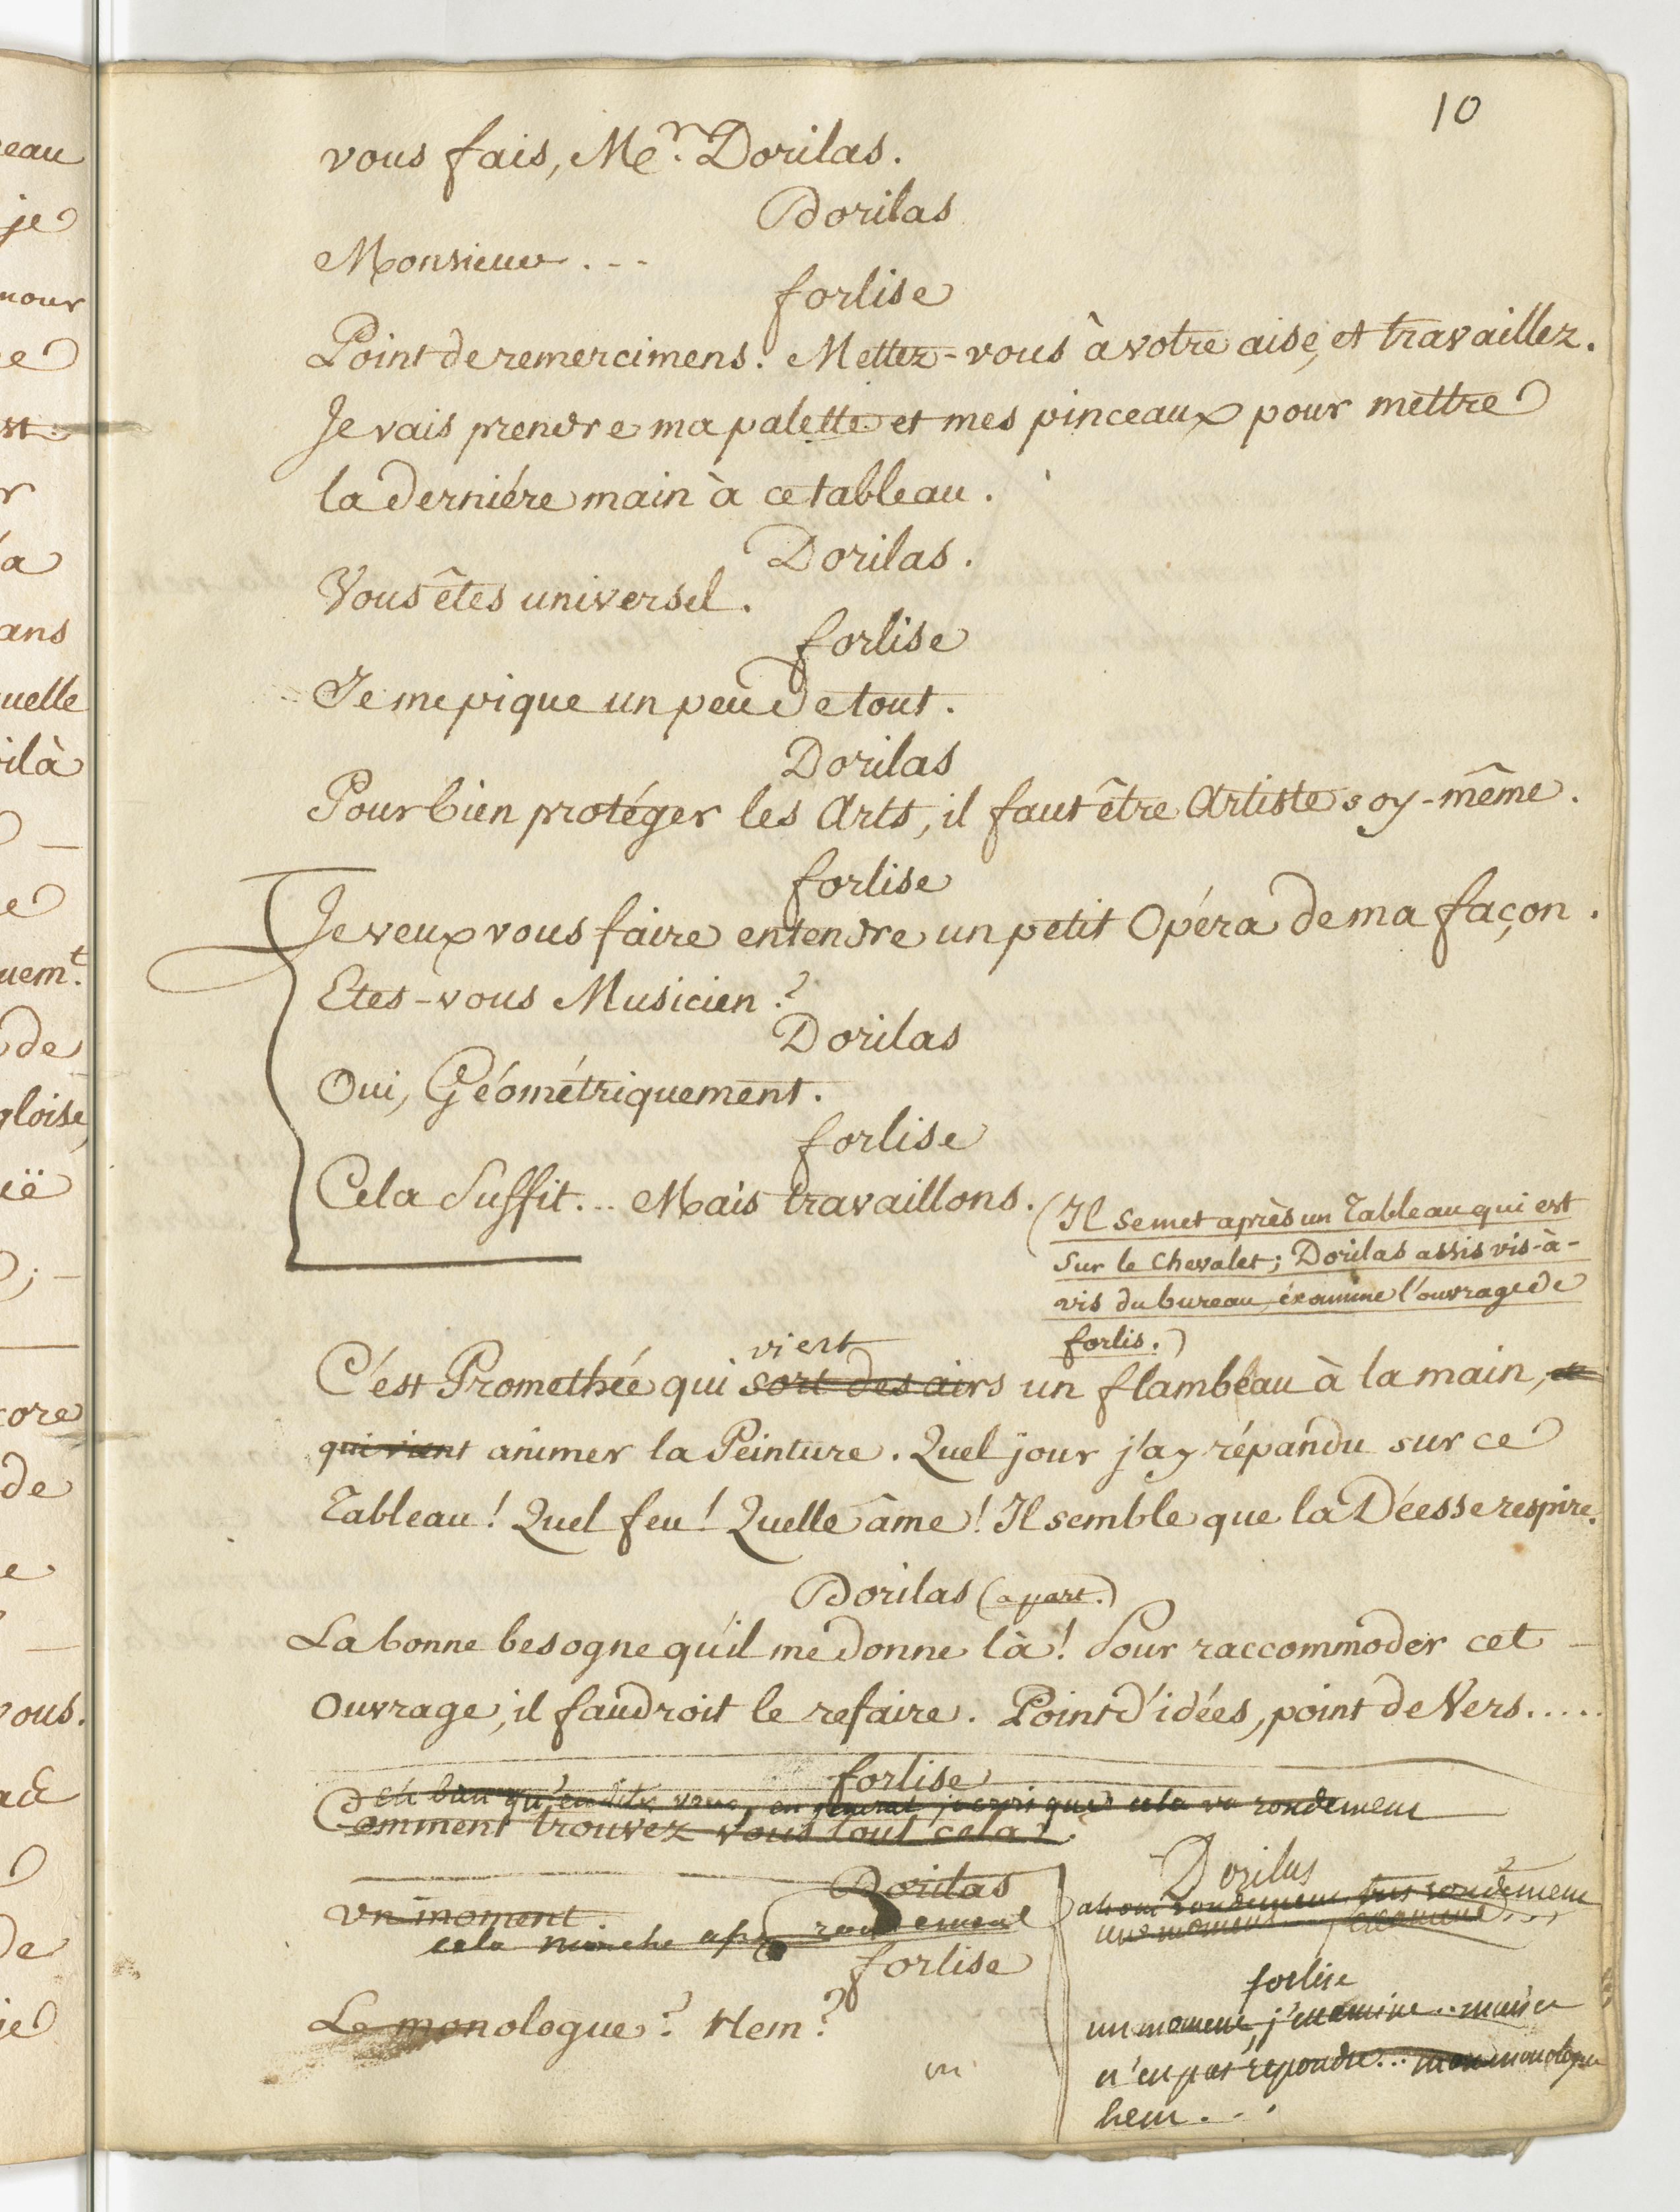 10
vous fais, Mr. Dorilas.
Dorilas
Monsieur . - -
forlise
Point de remercimens. Mettez-vous à votre aise, et travaillez.
Je vais prendre ma palette et mes pinceaux pour mettre
la derniére main à ce tableau.
Dorilas.
Vous êtes universel.
forlise
Je me pique un peu de tout.
Dorilas
Pour bien protéger les Arts, il faut être Artiste soy-même.
forlise
Je veux vous faire entendre un petit Opéra de ma façon.
Etes-vous Musicien ?
Dorilas
Oui, Géométriquement.
forlise
Cela Suffit... Mais travaillons.
(Il se met après un Tableau qui est
Sur le Chevalet ; Dorilas assis vis-à-
vis du bureau, éxamine l'ouvrage de
forlis.)
vient
C'est Promethée qui sort des airs un flambeau à la main, et
qui vient animer la Peinture. Quel jour j'ay répandu sur ce
Tableau ! Quel feu ! Quelle âme ! Il semble que la Déesse respire.
Dorilas (a part.)
La bonne besogne qu'il me donne là ! Pour raccommoder cet
Ouvrage, il faudroit le refaire. Point d'idées, point de Vers.....
forlise
Eh bien qu'en dites vous, en j'espere que cela va rondement
Comment trouvez vous tout cela ?
Dorilas
Un moment
cela marche rondement
forlise
Le monologue ? Hem ?
Dorilas
ah oui rondement, tres rondement
un moment... j'examine...
forlise
un moment, j'examine... mais ce
n'est pas repondre... mon monologue
hem...